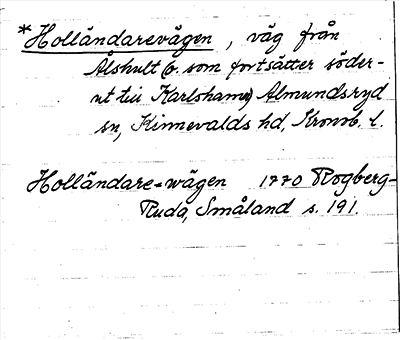 *Holländarevägen, väg från
Älshult (o. som fortsätter söder-
ut till Karlshamn) Almundsryd
sn, Kinnevalds hd, Kronob. l.
Holländare-wägen 1770 Rogberg-
Ruda, Småland s. 191.